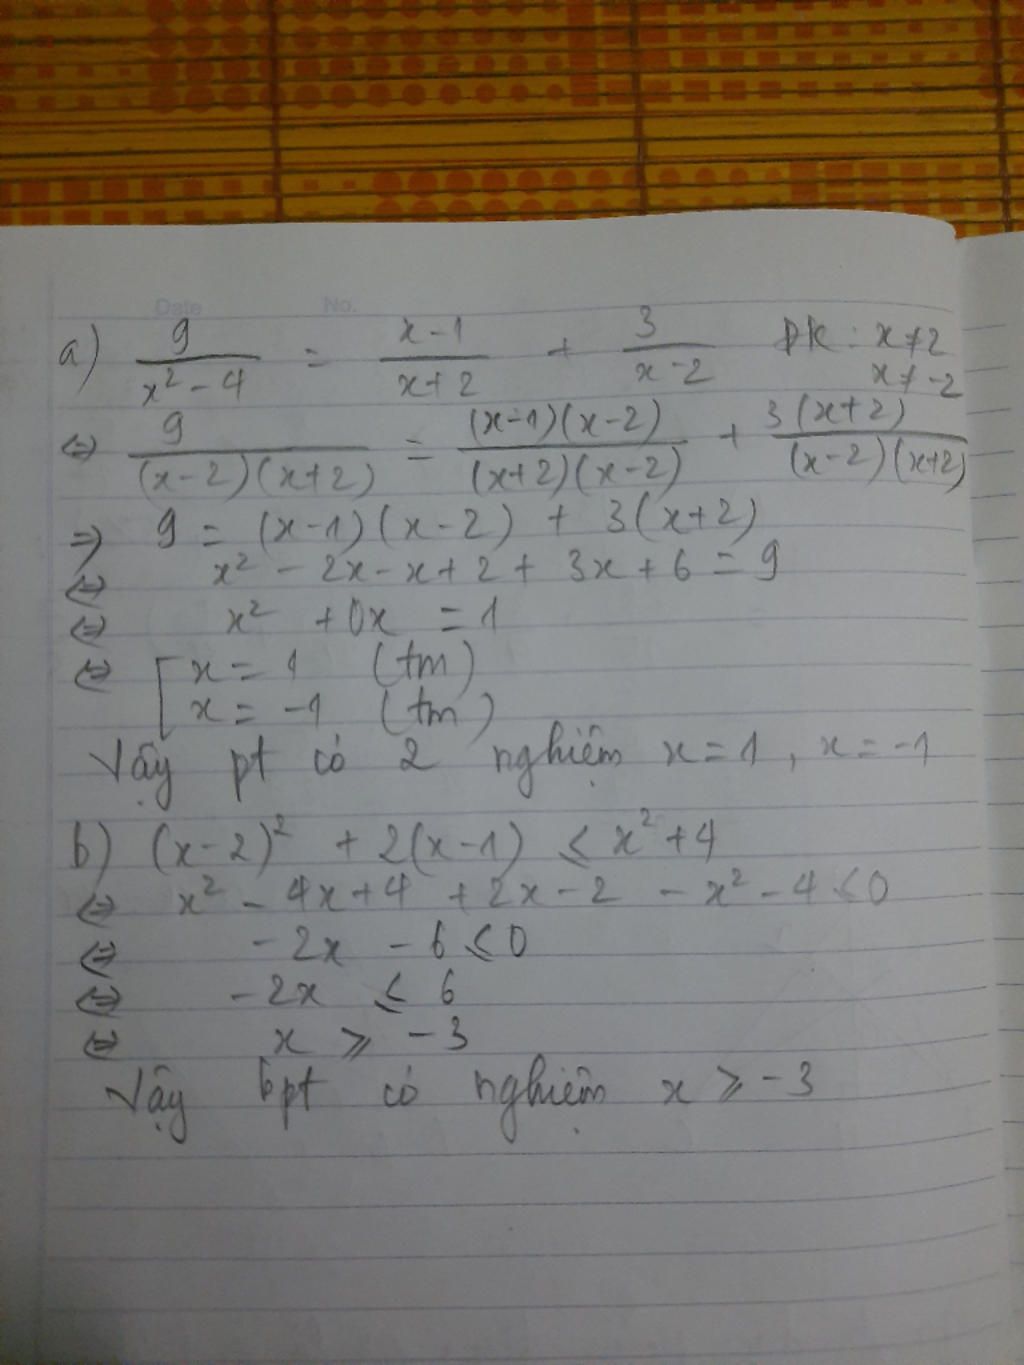 Date No.
a) 9/(x² - 4) = (x - 1)/(x + 2) + 3/(x - 2) ĐK : x ≠ 2
x ≠ -2
⇔ 9/((x - 2)(x + 2)) = ((x - 1)(x - 2))/((x + 2)(x - 2)) + (3(x + 2))/((x - 2)(x + 2))
⇒ 9 = (x - 1)(x - 2) + 3(x + 2)
⇔ x² - 2x - x + 2 + 3x + 6 = 9
⇔ x² + 0x = 1
⇔ [ x = 1 (tm)
x = -1 (tm)
Vậy pt có 2 nghiệm x = 1 , x = -1
b) (x - 2)² + 2(x - 1) ≤ x² + 4
⇔ x² - 4x + 4 + 2x - 2 - x² - 4 ≤ 0
⇔ - 2x - 6 ≤ 0
⇔ - 2x ≤ 6
⇔ x ≥ - 3
Vậy bpt có nghiệm x ≥ - 3